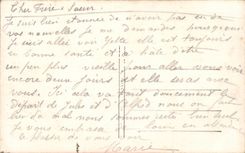 Cher Frère & Soeur
Je suis bien étonnée de n'avoir pas eu de
vos nouvelles je me demandes pourquoi
Je suis allée voir elle est toujours
en bonne santé et a hâte d'être
un peu plus vieille pour aller vous voir
encore deux jours et elle seras avec
vous. Ici cela va doucement le
départ de Jules et d' nous on fait
bien du mal nous sommes resté bien seul
Je vous embrasse
le plaisir de vous
Marie